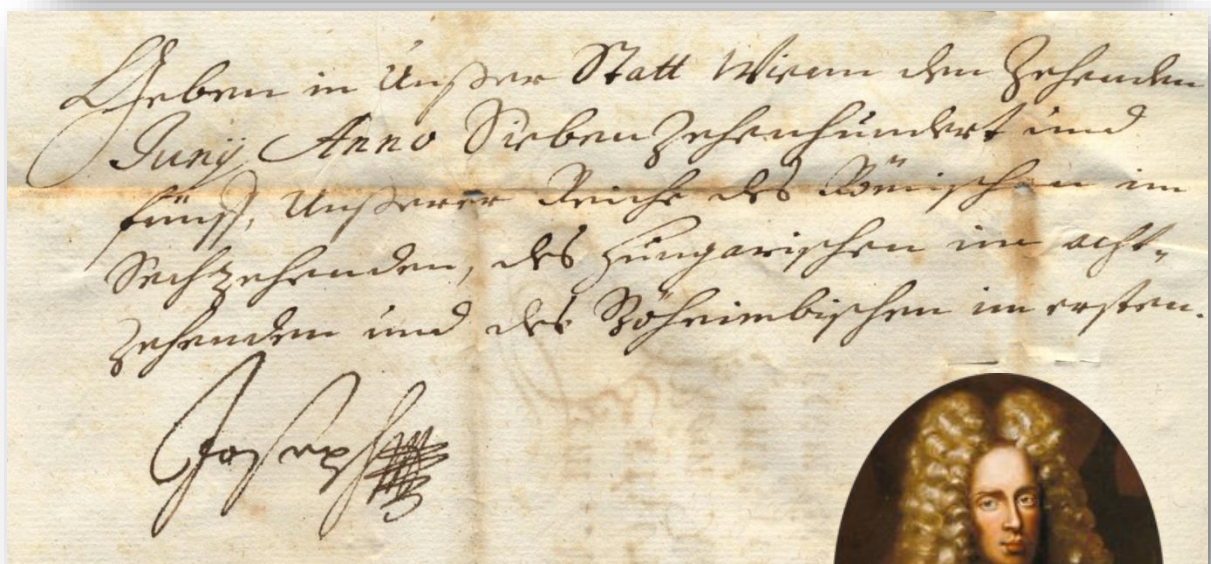 Geben in Unßer Statt Wienn den Zehenden
Juny Anno Siebenzehenhundert und
fünff, Unßerer Reiche des Römischen im
Sechzehenden, des Hungarischen im acht-
zehenden und des Böheimbischen im ersten.
Joseph